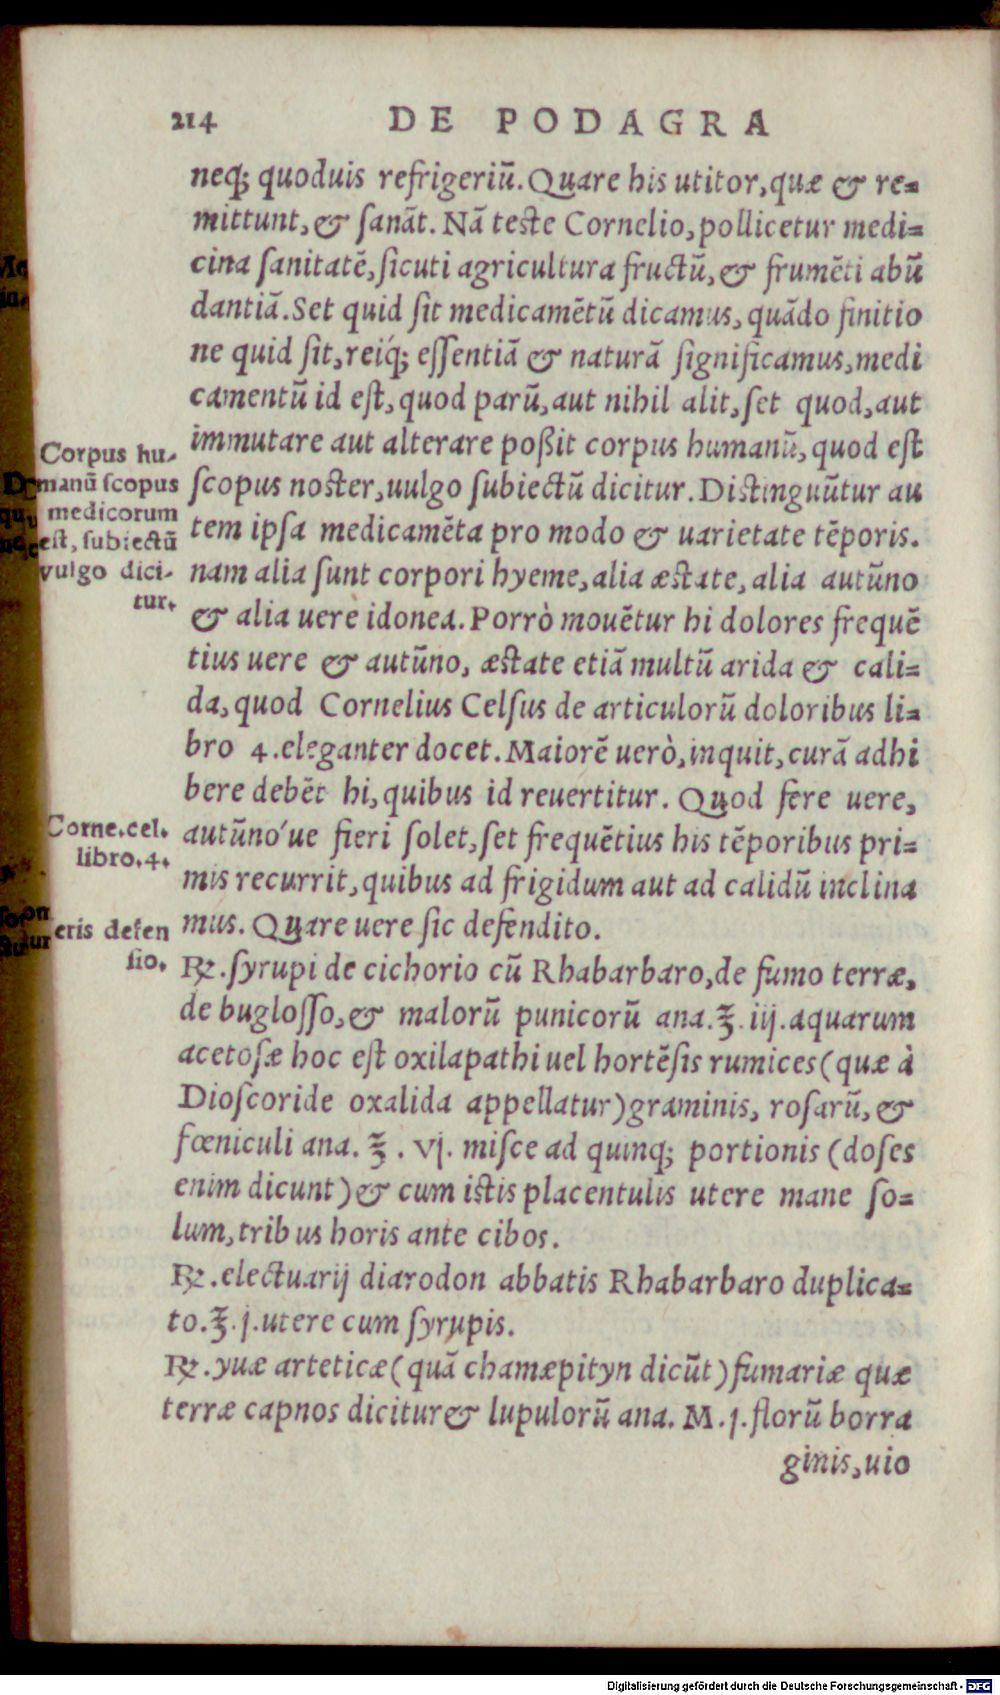 214 DE PODAGRA
neq; quoduis refrigeriũ. Quare his utitor, quæ & re=
mittunt, & ſanãt. Nã teste Cornelio, pollicetur medi=
cina ſanitatẽ, ſicuti agricultura fructũ, & frumẽti abũ
dantiã. Set quid ſit medicamẽtũ dicamus, quãdo finitio
ne quid ſit, reiq́; eſſentiã & naturã ſignificamus, medi
camentũ id eſt, quod parũ, aut nihil alit, ſet quod, aut
immutare aut alterare poßit corpus humanũ, quod eſt
ſcopus noster, uulgo ſubiectũ dicitur. Distinguũtur au
tem ipſa medicamẽta pro modo & uarietate tẽporis.
nam alia ſunt corpori hyeme, alia æstate, alia autũno
& alia uere idonea. Porrò mouẽtur hi dolores frequẽ
tius uere & autũno, æstate etiã multũ arida & cali=
da, quod Cornelius Celſus de articulorũ doloribus li=
bro 4. eleganter docet. Maiorẽ uerò, inquit, curã adhi
bere debẽt hi, quibus id reuertitur. Quod fere uere,
autũno´ue fieri ſolet, ſet frequẽtius his tẽporibus pri=
mis recurrit, quibus ad frigidum aut ad calidũ inclina
mus. Quare uere ſic defendito.
℞. ſyrupi de cichorio cũ Rhabarbaro, de fumo terræ,
de bugloſſo, & malorũ punicorũ ana. ℥. iij. aquarum
acetoſæ hoc eſt oxilapathi uel hortẽſis rumices (quæ à
Dioſcoride oxalida appellatur) graminis, roſarũ, &
fœniculi ana. ℥. vj. miſce ad quinq; portionis (doſes
enim dicunt) & cum istis placentulis utere mane ſo=
lum, tribus horis ante cibos.
℞. electuarij diarodon abbatis Rhabarbaro duplica=
to. ℥. j. utere cum ſyrupis.
℞. yuæ arteticæ (quã chamæpityn dicũt) fumariæ quæ
terræ capnos dicitur & lupulorũ ana. M. j. florũ borra
ginis, uio
Corpus hu-
manũ ſcopus
medicorum
eſt, ſubiectũ
vulgo dici-
tur.
Corne. cel.
libro. 4.
eris defen
ſio.
Digitalisierung gefördert durch die Deutsche Forschungsgemeinschaft - DFG